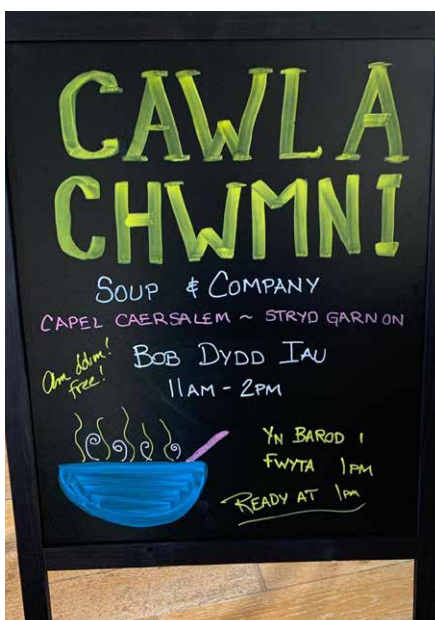 CAWL A
CHWMNI
SOUP & COMPANY
CAPEL CAERSALEM ~ STRYD GARNON
Am ddim!
free!
BOB DYDD IAU
11AM - 2PM
YN BAROD I
FWYTA 1PM
READY AT 1PM